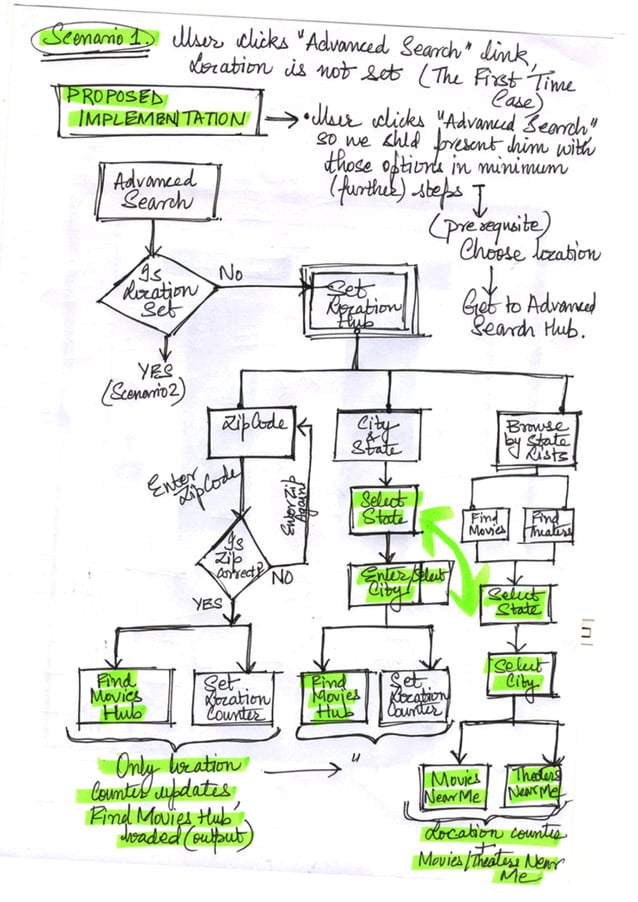 Scenario 1. User clicks "Advanced Search" link,
Location is not set (The First Time
Case)
PROPOSED
IMPLEMENTATION
• User clicks "Advanced Search"
so we shld present him with
those options in minimum
(further) steps
(prerequsite)
Choose location
Get to Advanced
Search Hub.
Advanced
Search
Is
Location
Set
No
Set
Location
Hub
YES
(Scenario 2)
Zip Code
City
&
State
Browse
by State
Lists
Enter
Zip Code
Enter Zip
Again
Select
State
Find
Movies
Find
Theaters
Is
Zip
Correct?
NO
YES
Enter/Select
City
Select
State
Select
City
Find
Movies
Hub
Set
Location
Counter
Find
Movies
Hub
Set
Location
Counter
Movies
Near Me
Theaters
Near Me
Only location
counter updates
Find Movies Hub,
loaded (output)
"
Location counter
+
Movies/Theaters Near
Me